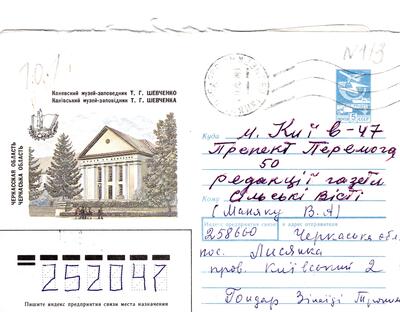 N 1/3
Каневский музей-заповедник Т. Г. ШЕВЧЕНКО
Канівський музей-заповідник Т. Г. ШЕВЧЕНКА
ЧЕРКАССКАЯ ОБЛАСТЬ
ЧЕРКАСЬКА ОБЛАСТЬ
5
Куда м. Київ-47
Препект Перемога
50
редакції газети
Кому Сільські вісті
(Маняку В.А)
Индекс предприятия связи и адрес отправителя
258660 Черкаська обл.
пос. Лисянка
пров. Київський 2
Гондар Зінаїді
252047
Пишите индекс предприятия связи места назначения